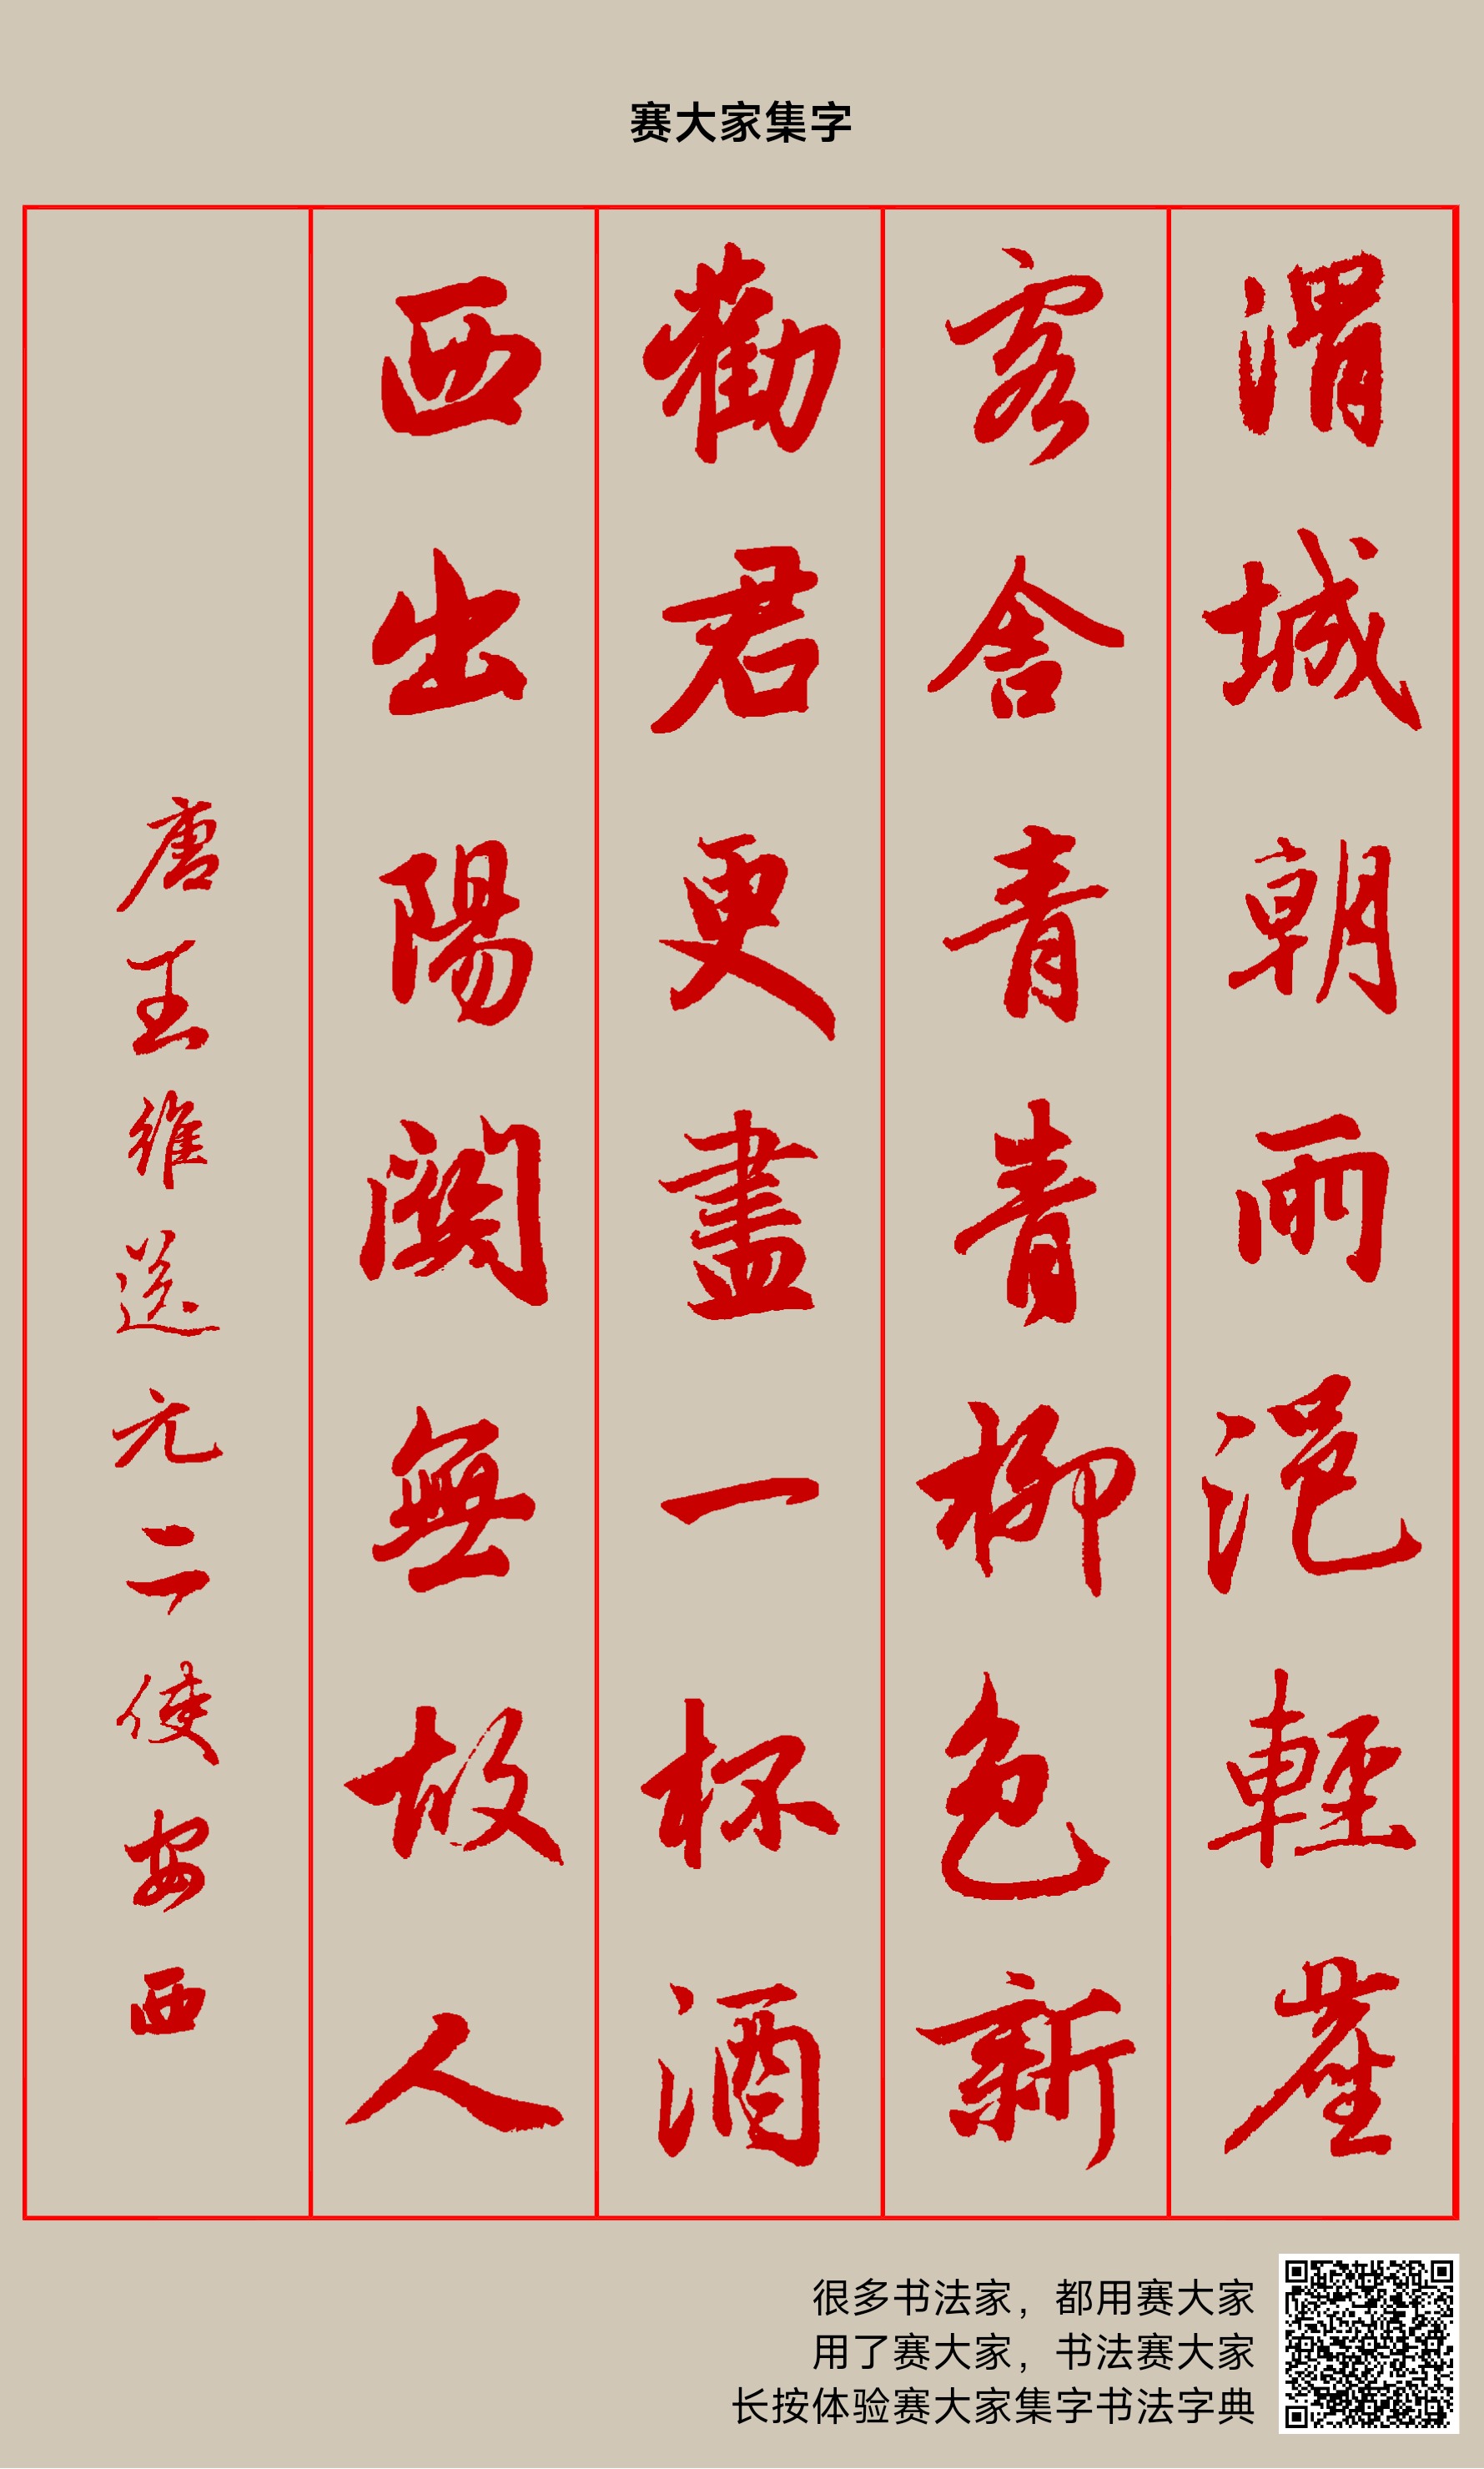 赛大家集字
渭城朝雨浥輕塵
客舍青青柳色新
勸君更盡一杯酒
西出陽関無故人
唐王維送元二使安西
很多书法家，都用赛大家
用了赛大家，书法赛大家
长按体验赛大家集字书法字典